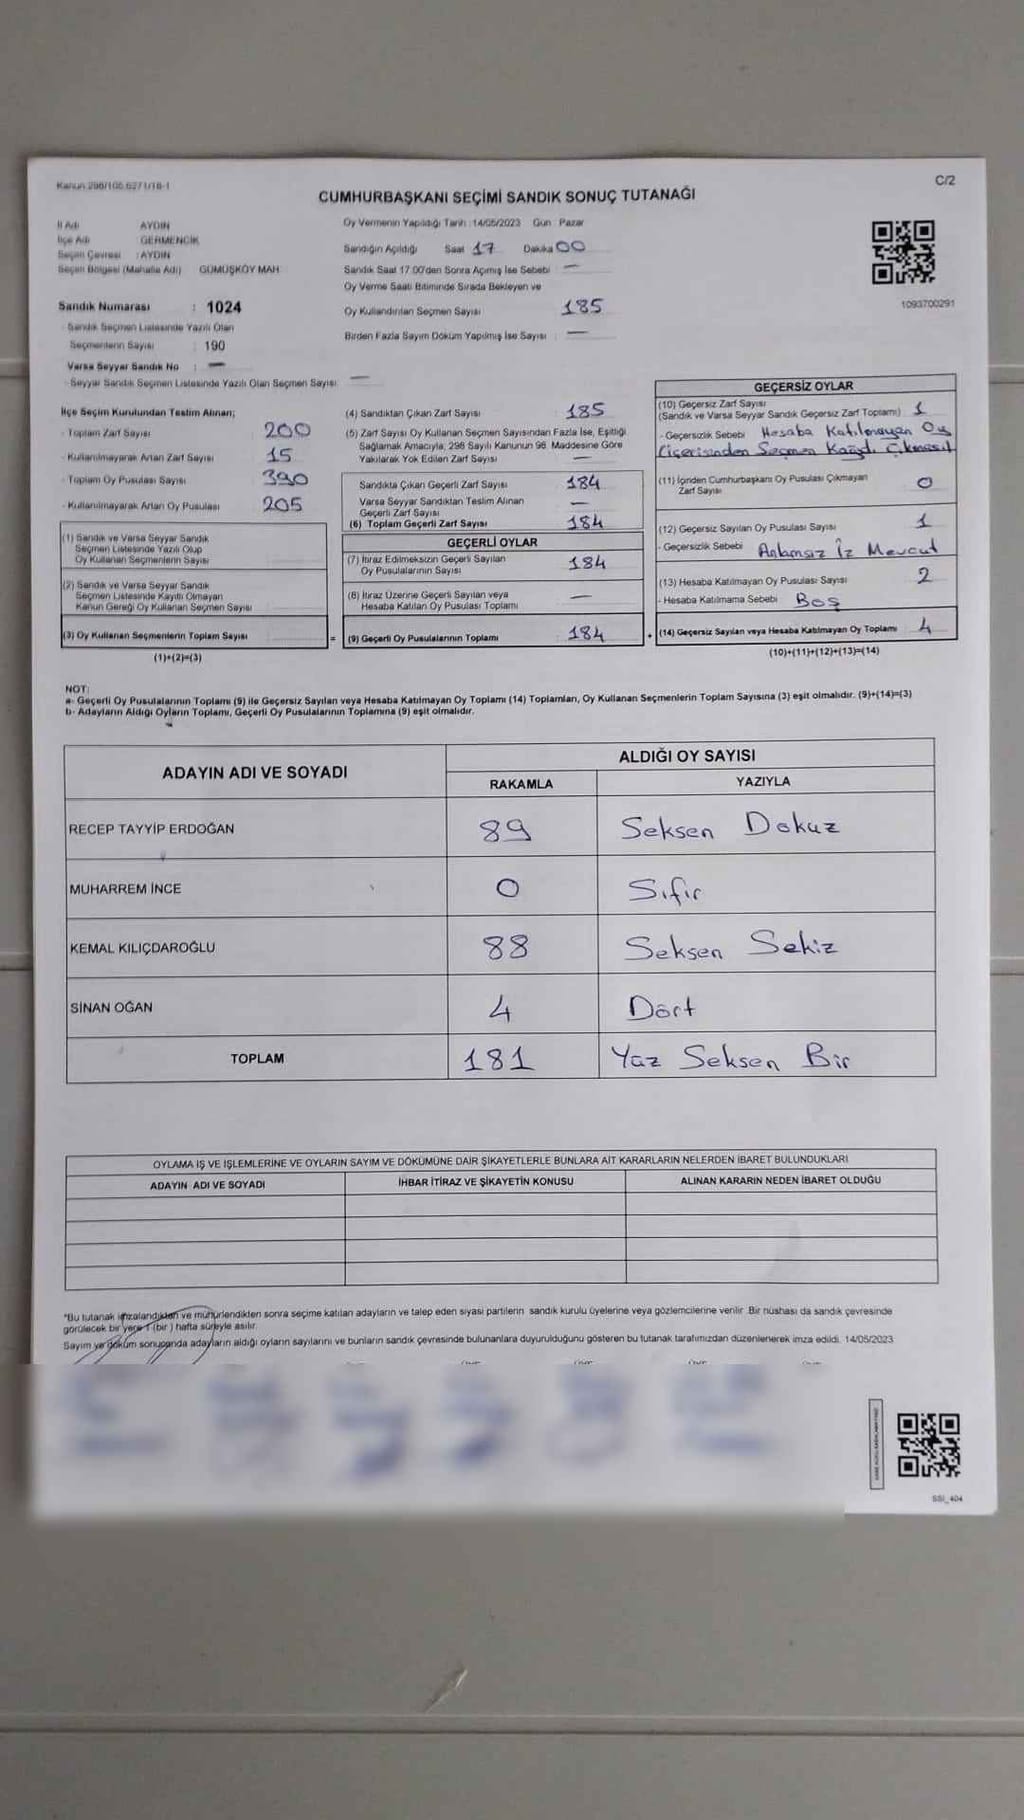 Kanun 298/105,6271/18-1
C/2
CUMHURBAŞKANI SEÇİMİ SANDIK SONUÇ TUTANAĞI
İl Adı AYDIN
İlçe Adı GERMENCİK
Seçim Çevresi : AYDIN
Seçim Bölgesi (Mahalle Adı) GÜMÜŞKÖY MAH
Sandık Numarası : 1024
- Sandık Seçmen Listesinde Yazılı Olan
Seçmenlerin Sayısı : 190
Varsa Seyyar Sandık No : —
- Seyyar Sandık Seçmen Listesinde Yazılı Olan Seçmen Sayısı: —
Oy Vermenin Yapıldığı Tarih : 14/05/2023 Gün : Pazar
Sandığın Açıldığı Saat 17 Dakika 00
Sandık Saat 17.00'den Sonra Açılmış İse Sebebi : —
Oy Verme Saati Bitiminde Sırada Bekleyen ve
Oy Kullandırılan Seçmen Sayısı 185
Birden Fazla Sayım Döküm Yapılmış İse Sayısı : —
1093700291
İlçe Seçim Kurulundan Teslim Alınan;
- Toplam Zarf Sayısı 200
- Kullanılmayarak Artan Zarf Sayısı 15
- Toplam Oy Pusulası Sayısı 390
- Kullanılmayarak Artan Oy Pusulası 205
(1) Sandık ve Varsa Seyyar Sandık
Seçmen Listesinde Yazılı Olup
Oy Kullanan Seçmenlerin Sayısı
(2) Sandık ve Varsa Seyyar Sandık
Seçmen Listesinde Kayıtlı Olmayan
Kanun Gereği Oy Kullanan Seçmen Sayısı
(3) Oy Kullanan Seçmenlerin Toplam Sayısı =
(1)+(2)=(3)
(4) Sandıktan Çıkan Zarf Sayısı 185
(5) Zarf Sayısı Oy Kullanan Seçmen Sayısından Fazla İse, Eşitliği
Sağlamak Amacıyla; 298 Sayılı Kanunun 98. Maddesine Göre
Yakılarak Yok Edilen Zarf Sayısı —
Sandıkta Çıkan Geçerli Zarf Sayısı 184
Varsa Seyyar Sandıktan Teslim Alınan
Geçerli Zarf Sayısı —
(6) Toplam Geçerli Zarf Sayısı 184
GEÇERLİ OYLAR
(7) İtiraz Edilmeksizin Geçerli Sayılan
Oy Pusulalarının Sayısı 184
(8) İtiraz Üzerine Geçerli Sayılan veya
Hesaba Katılan Oy Pusulası Toplamı —
(9) Geçerli Oy Pusulalarının Toplamı 184 +
GEÇERSİZ OYLAR
(10) Geçersiz Zarf Sayısı
(Sandık ve Varsa Seyyar Sandık Geçersiz Zarf Toplamı) 1
- Geçersizlik Sebebi Hesaba Katılmayan Oy
(içerisinden Seçmen Kağıdı Çıkması)
(11) İçinden Cumhurbaşkanı Oy Pusulası Çıkmayan
Zarf Sayısı 0
(12) Geçersiz Sayılan Oy Pusulası Sayısı 1
- Geçersizlik Sebebi Anlamsız İz Mevcut
(13) Hesaba Katılmayan Oy Pusulası Sayısı 2
- Hesaba Katılmama Sebebi Boş
(14) Geçersiz Sayılan veya Hesaba Katılmayan Oy Toplamı 4
(10)+(11)+(12)+(13)=(14)
NOT:
a- Geçerli Oy Pusulalarının Toplamı (9) ile Geçersiz Sayılan veya Hesaba Katılmayan Oy Toplamı (14) Toplamları, Oy Kullanan Seçmenlerin Toplam Sayısına (3) eşit olmalıdır. (9)+(14)=(3)
b- Adayların Aldığı Oyların Toplamı, Geçerli Oy Pusulalarının Toplamına (9) eşit olmalıdır.
ADAYIN ADI VE SOYADI ALDIĞI OY SAYISI
RAKAMLA YAZIYLA
RECEP TAYYİP ERDOĞAN 89 Seksen Dokuz
MUHARREM İNCE 0 Sıfır
KEMAL KILIÇDAROĞLU 88 Seksen Sekiz
SİNAN OĞAN 4 Dört
TOPLAM 181 Yüz Seksen Bir
OYLAMA İŞ VE İŞLEMLERİNE VE OYLARIN SAYIM VE DÖKÜMÜNE DAİR ŞİKAYETLERLE BUNLARA AİT KARARLARIN NELERDEN İBARET BULUNDUKLARI
ADAYIN ADI VE SOYADI İHBAR İTİRAZ VE ŞİKAYETİN KONUSU ALINAN KARARIN NEDEN İBARET OLDUĞU
*Bu tutanak imzalandıktan ve mühürlendikten sonra seçime katılan adayların ve talep eden siyasi partilerin sandık kurulu üyelerine veya gözlemcilerine verilir. Bir nüshası da sandık çevresinde
görülecek bir yere 1 (bir ) hafta süreyle asılır.
Sayım ve döküm sonucunda adayların aldığı oyların sayılarını ve bunların sandık çevresinde bulunanlara duyurulduğunu gösteren bu tutanak tarafımızdan düzenlenerek imza edildi. 14/05/2023
SSI_404